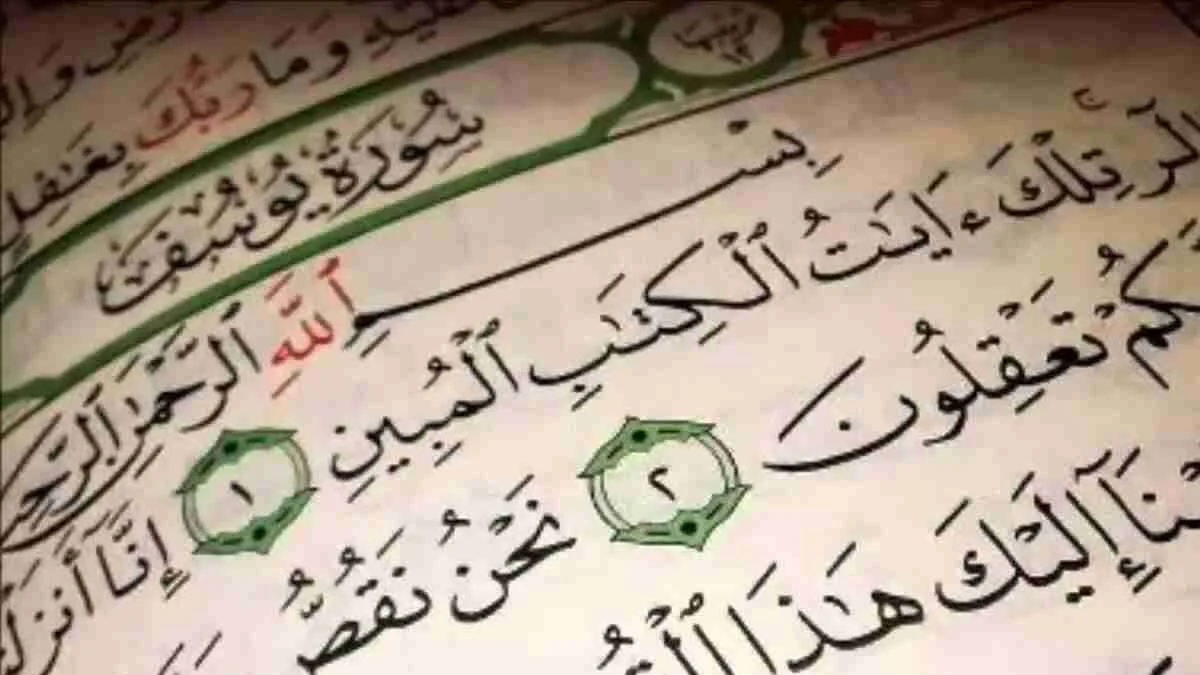 وَمَا رَبُّكَ بِغَٰفِلٍ
سُورَةُ يُوسُفَ
بِسْمِ ٱللَّهِ ٱلرَّحْمَٰنِ ٱلرَّحِيـ
الٓر تِلْكَ ءَايَٰتُ ٱلْكِتَٰبِ ٱلْمُبِينِ ١ إِنَّآ أَنزَلْـ
ـكُمْ تَعْقِلُونَ ٢ نَحْنُ نَقُصُّ
ـنَآ إِلَيْكَ هَٰذَا